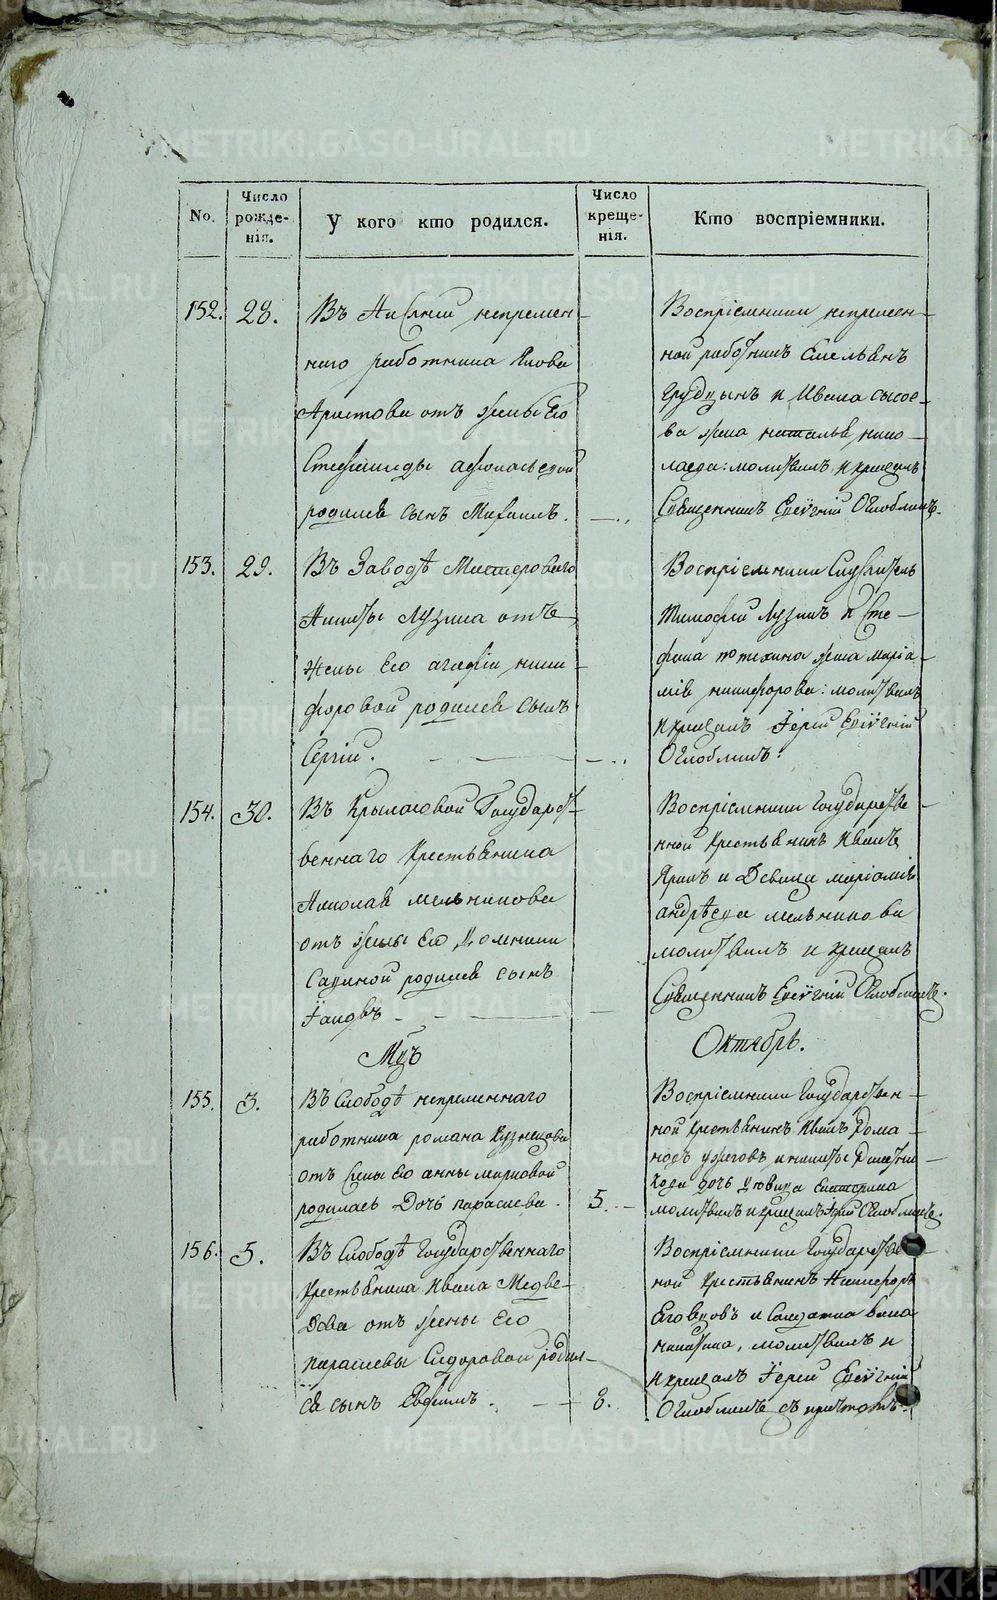 No.
Число рожде-нія.
У кого кто родился.
Число креще-нія.
Кто воспріемники.
152.
28.
Въ непремен-
наго работника Якова
Аристова отъ жены Его
Стефаниды афонасьевой
родился сынъ Михаилъ.
Воспріемники непремен-
ной работникъ Емельянъ
Грудцынъ и Ивана сысое-
ва жена наталья нико-
лаева: молитвилъ и крещалъ
Священникъ Евѵгній Оглоблинъ.
153.
29.
Въ Заводѣ Мастероваго
Никиты Лузина отъ
Жены Его агафіи ники-
форовой родился Сынъ
Сергій.
Воспріемники Служитель
Тимофей Лузинъ и Сте-
фана потехина жена маріа-
мія никифорова: молитвилъ
и крещалъ Іерей Евѵгній
Оглоблинъ.
154.
30.
Въ Крыласовой Государст-
веннаго Крестьянина
Николая мельникова
отъ жены Его Домники
Савиной родился сынъ
Іаковъ
Воспріемники Государстве-
нной Крестьянинъ Иванъ
и Девица маріамія
андрѣева мельникова
молитвилъ и крещалъ
Священникъ Евѵгній Оглоблинъ.
Октябрь.
155.
3.
Въ Слободѣ непременнаго
работника романа Кузнецова
отъ Жены Его анны марковой
родилась Дочь параскева.
5.
Воспріемники Государствен-
ной Крестьянинъ Иванъ Рома-
новъ и никиты
дочь Девица Екатерина
молитвилъ и крещалъ Іерей Оглоблинъ.
156.
5.
Въ Слободѣ Государственнаго
Крестьянина Ивана Медве-
дева отъ жены Его
параскевы Сидоровой родил-
ся сынъ Евфимъ.
8.
Воспріемники Государстве-
ной Крестьянинъ Никифоръ
и
никитина, молитвилъ и
крещалъ Іерей Евѵгній
Оглоблинъ съ причтомъ.
METRIKI.GASO-URAL.RU